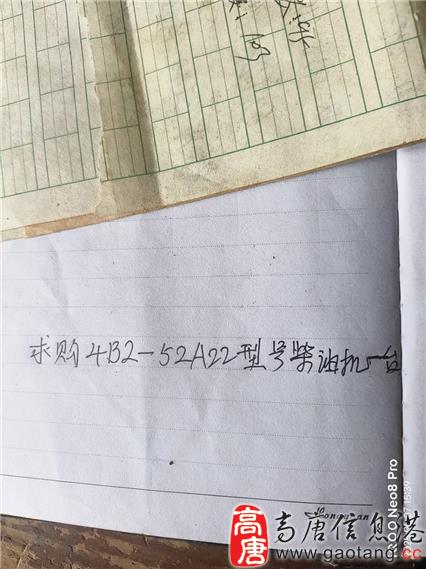 求购4B2-52A22型号柴油机一台
高唐信息港
高唐
www.gaotang.cc